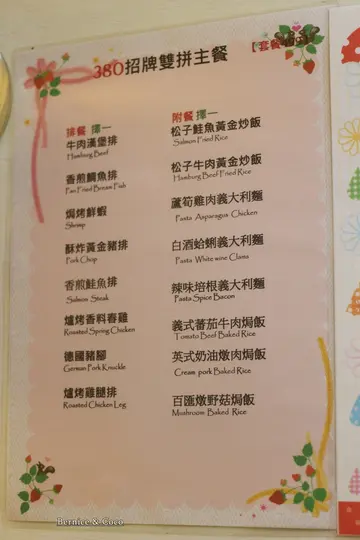 380招牌雙拼主餐
【套餐
排餐 擇一
牛肉漢堡排
Hamburg Beef
香煎鯛魚排
Pan Fried Bream Fish
焗烤鮮蝦
Shrimp
酥炸黃金豬排
Pork Chop
香煎鮭魚排
Salmon Steak
爐烤香料春雞
Roasted Spring Chicken
德國豬腳
German Pork Knuckle
爐烤雞腿排
Roasted Chicken Leg
附餐 擇一
松子鮭魚黃金炒飯
Salmon Fried Rice
松子牛肉黃金炒飯
Hamburg Beef Fried Rice
蘆筍雞肉義大利麵
Pasta Asparagus Chicken
白酒蛤蜊義大利麵
Pasta White wine Clams
辣味培根義大利麵
Pasta Spice Bacon
義式蕃茄牛肉焗飯
Tomato Beef Baked Rice
英式奶油燉肉焗飯
Cream pork Baked Rice
百匯燉野菇焗飯
Mushroom Baked Rice
Bernice & Coco